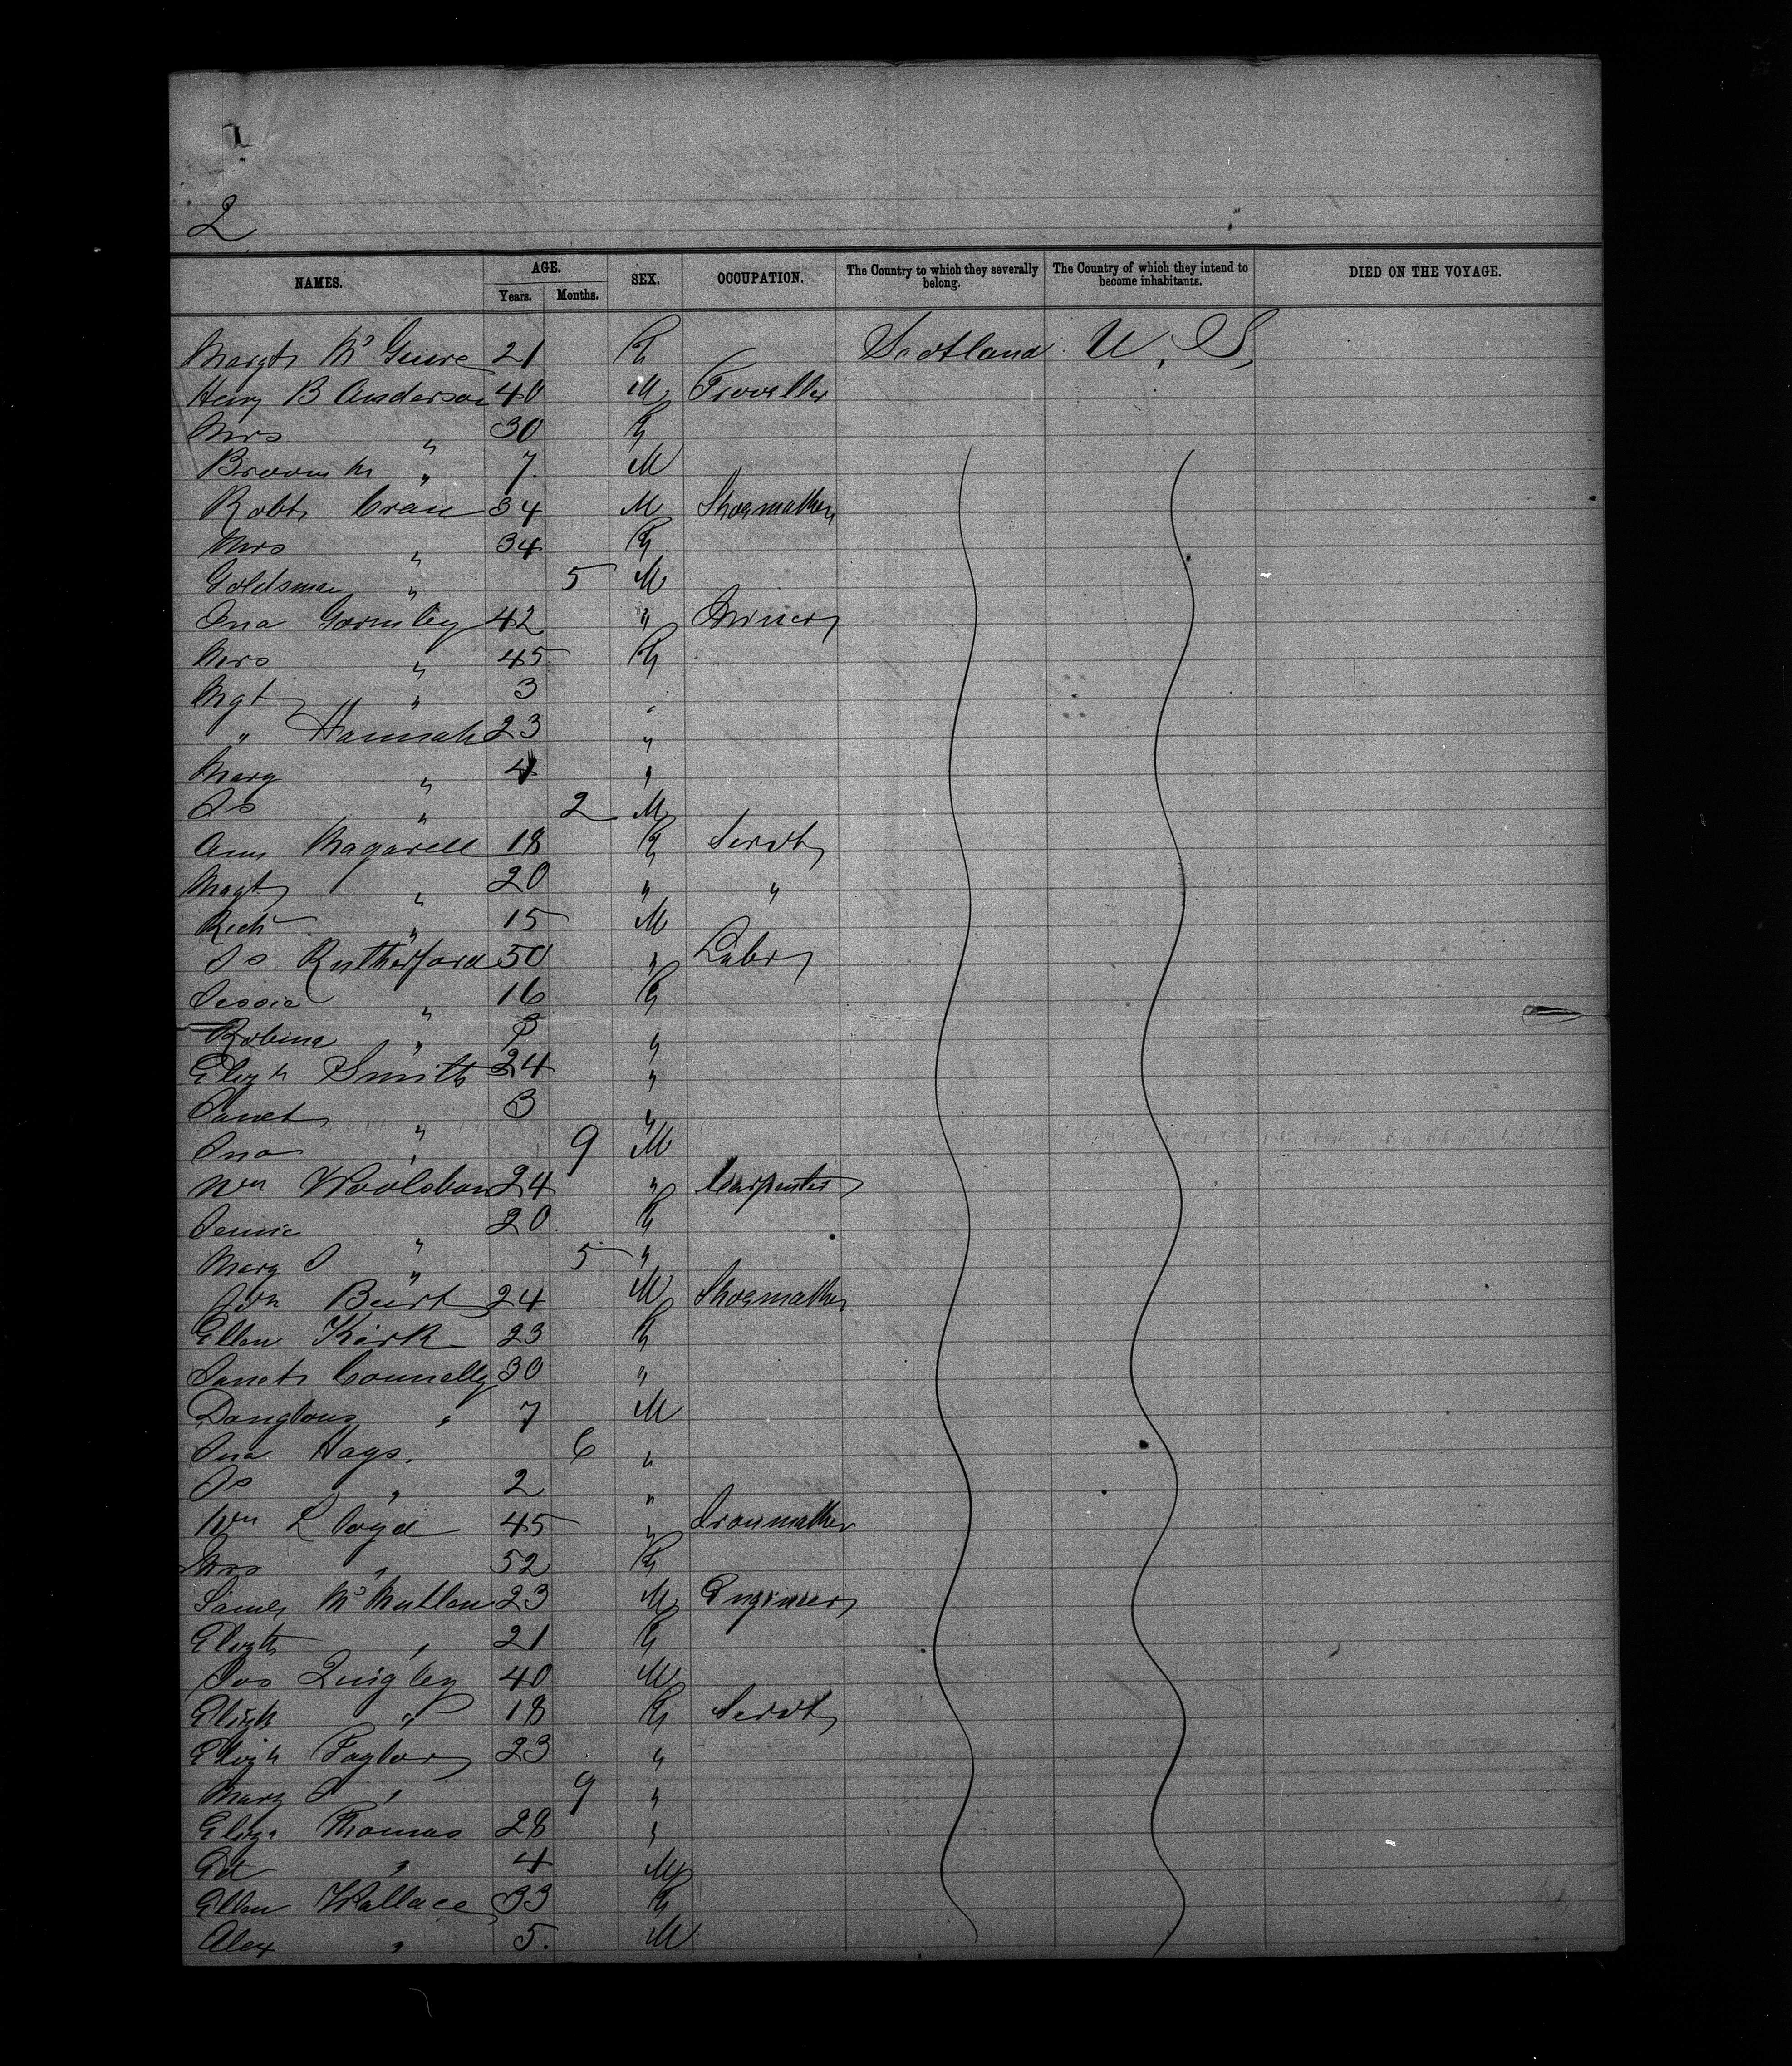 2
NAMES. AGE. SEX. OCCUPATION. The Country to which they severally belong. The Country of which they intend to become inhabitants. DIED ON THE VOYAGE.
Years. Months.
Margt McGuire 21 F Scotland U.S.
Heny B Anderson 40 M Traveller
Mrs " 30 F
Broom M " 7 M
Robt Crau 34 M Shoemaker
Mrs " 34 F
Goldsman " 5 M
Jno Gormley 42 " Miner
Mrs " 45 F
Mgt " 3 "
" Hannah 23 "
Mary " 4 "
Js " 2 M
Ann Magarell 18 F Servt
Magt " 20 " "
Rich " 15 M
Js Rutherford 50 " Labr
Jessie " 16 F
Robina " "
Elizh Smith 24 "
Janet " 3 "
Jno " 9 M
Wm 24 " Carpenter
Jennie " 20 F
Mary J " 5 "
Burt 24 M Shoemaker
Ellen Kirk 23 F
Janet Connelly 30 "
" 7 M
Jno Hays. 6 "
Js " 2 "
Wm Lloyd 45 " Ironmaker
Mrs " 52 F
James McMullen 23 M Engineer
Elizth " 21 F
Jos Quigley 40 M
Elizh " 18 F Servt
Elizh Taylor 23 "
Mary J " 9 "
Eliza Thomas 28 "
Ed " 4 M
Ellen Wallace 33 F
Alex " 5. M